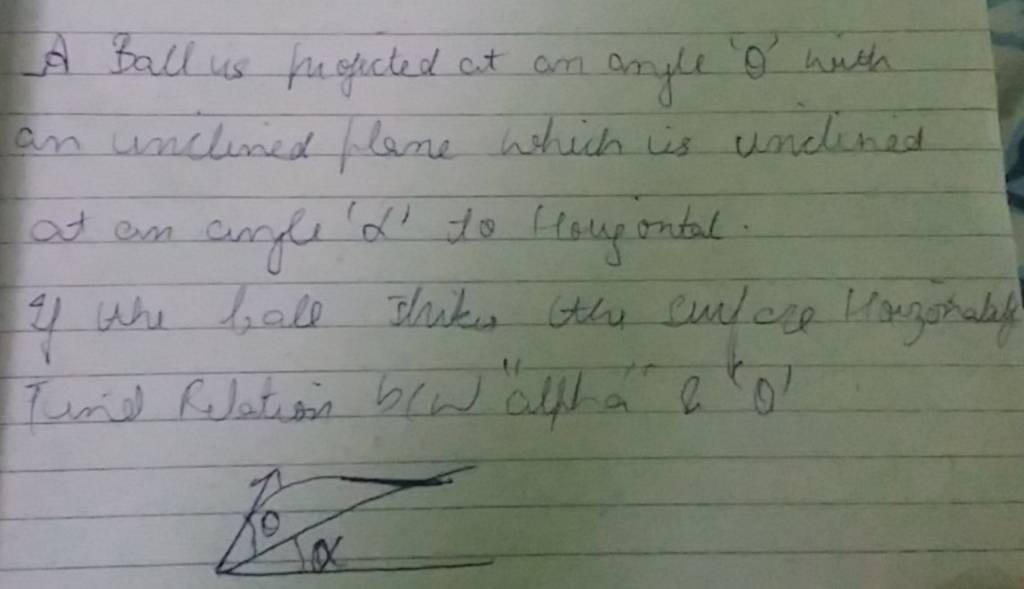 A Ball is projected at an angle 'θ' with
an inclined plane which is inclined
at an angle 'α' to Horizontal.
If the ball strikes the surface Horizontally
Find Relation b/w "alpha" & 'θ'
θ
α